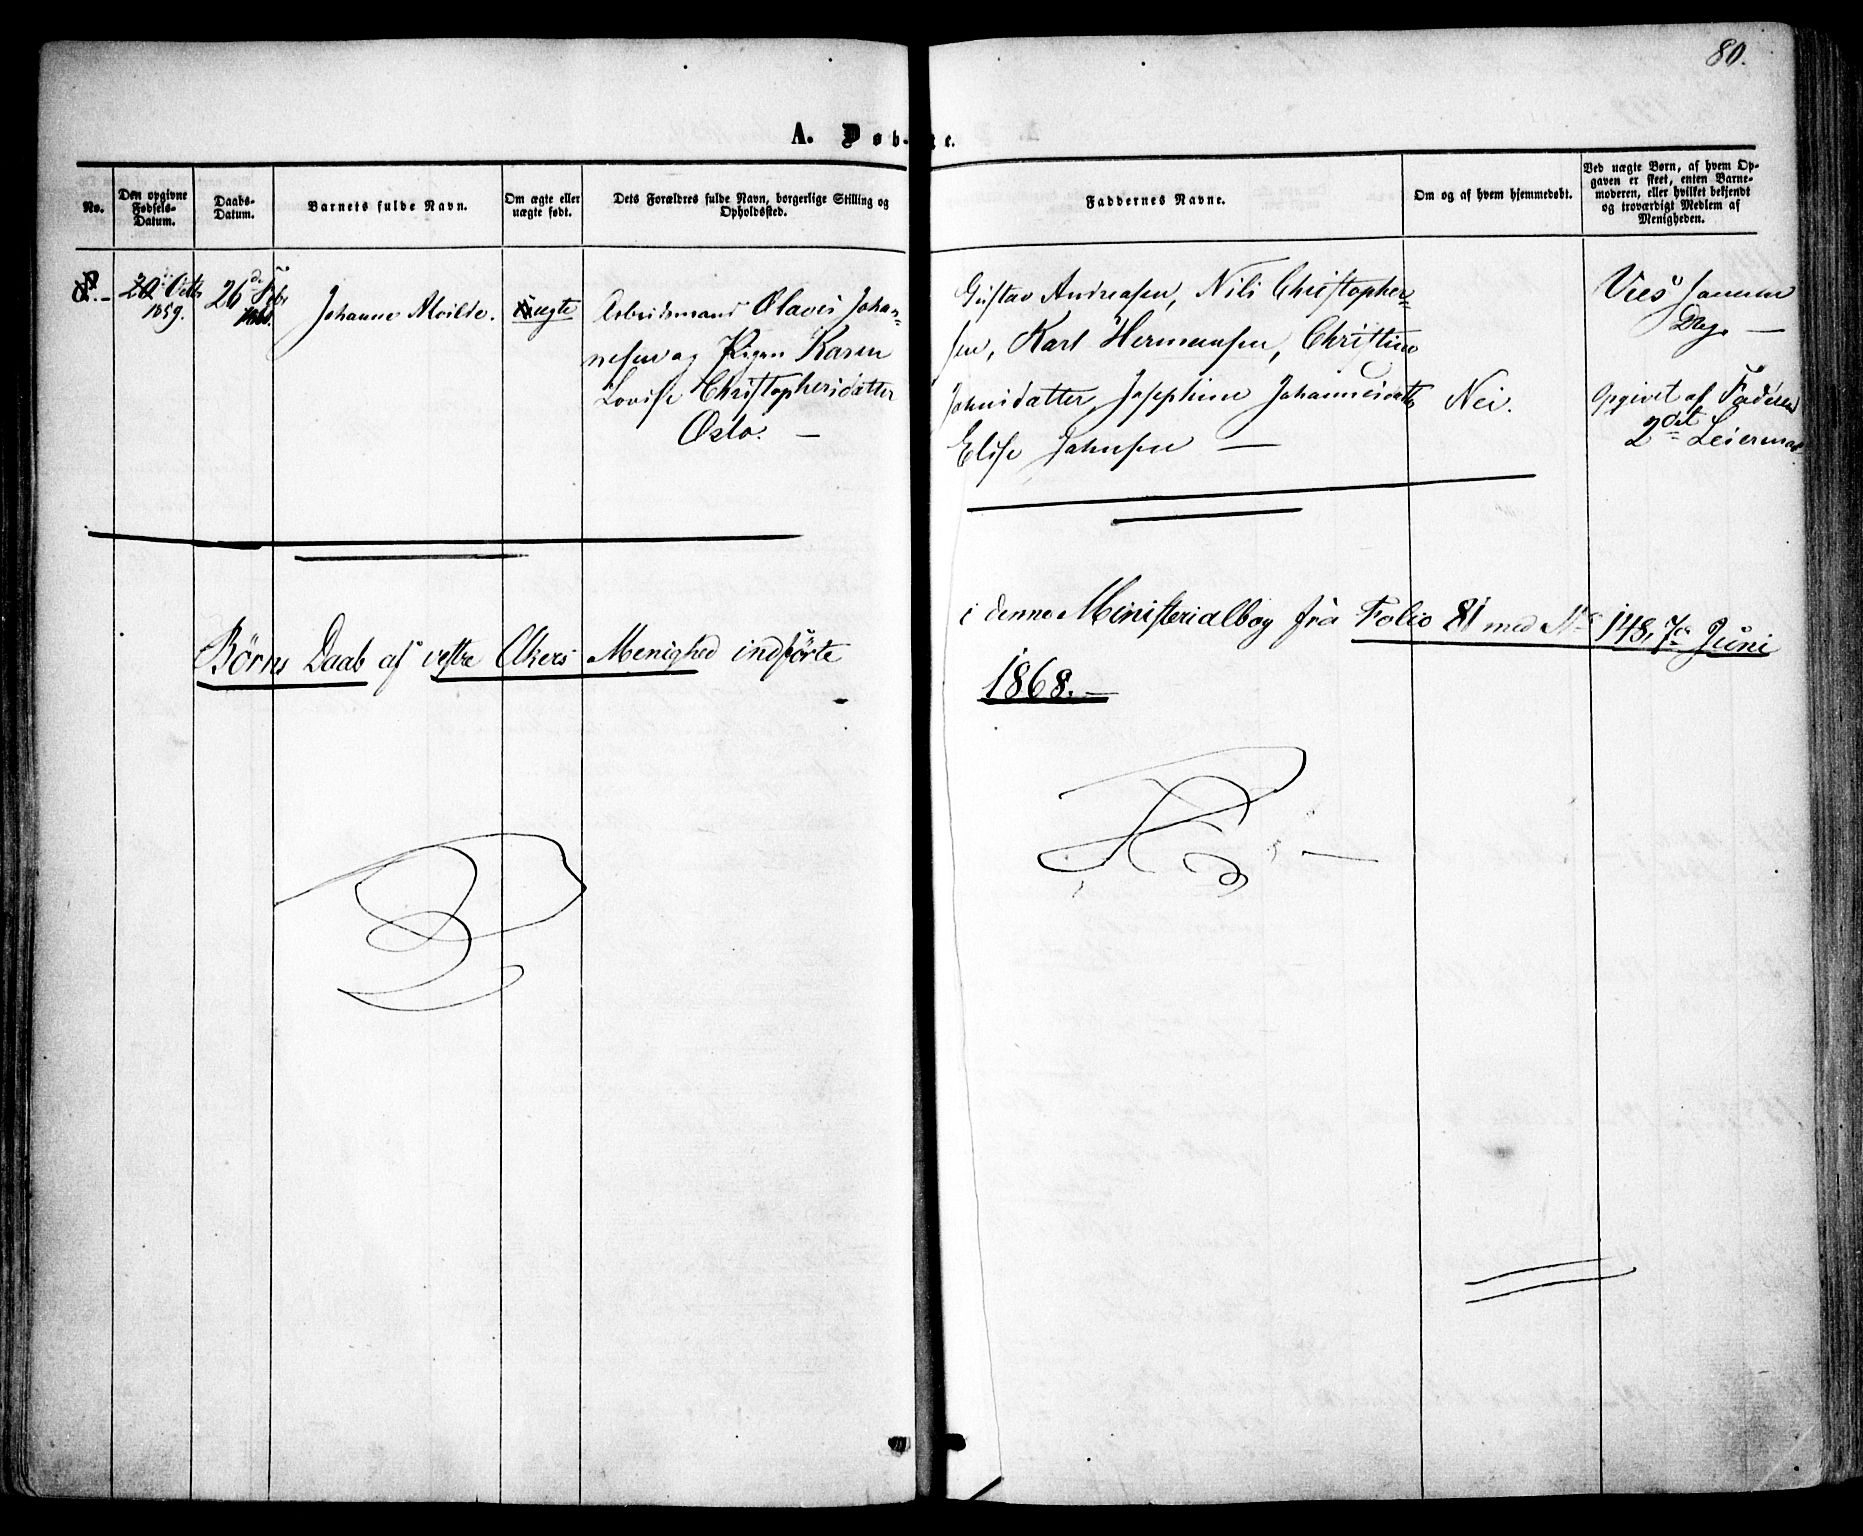 80.
A. Døb-te.
No.
Den opgivne Fødsels-Datum.
Daabs-Datum.
Barnets fulde Navn.
Om ægte eller uægte født.
Dets Forældres fulde Navn, borgerlige Stilling og Opholdssted.
Faddernes Navne.
Om og af hvem hjemmedøbt.
Ved uægte Børn, af hvem Op-
gaven er skeet, enten Barne-
moderen, eller hvilket bekjendt
og troværdigt Medlem af
Menigheden.
8.-
20 Octbr
1859.
26de Febr
Johanne Alvilde.
Uægte
Arbeidsmand Olaves Johan-
nesen og Pigen Karen
Lovise Christophersdatter
Oslo. —
Gustav Andreasen, Nils Christopher-
sen, Karl Hermansen, Christine
Johnsdatter, Josephine Johannesdatter
Elise Johnsen —
Nei.
Vies samme
Dag. —
Opgivet af Faderen
2det Leiermaal.
Børns Daab af vestre Akers Menighed indførte
i denne Ministerialbog fra Folio 81 med No 148, 7de Juni
1868. —